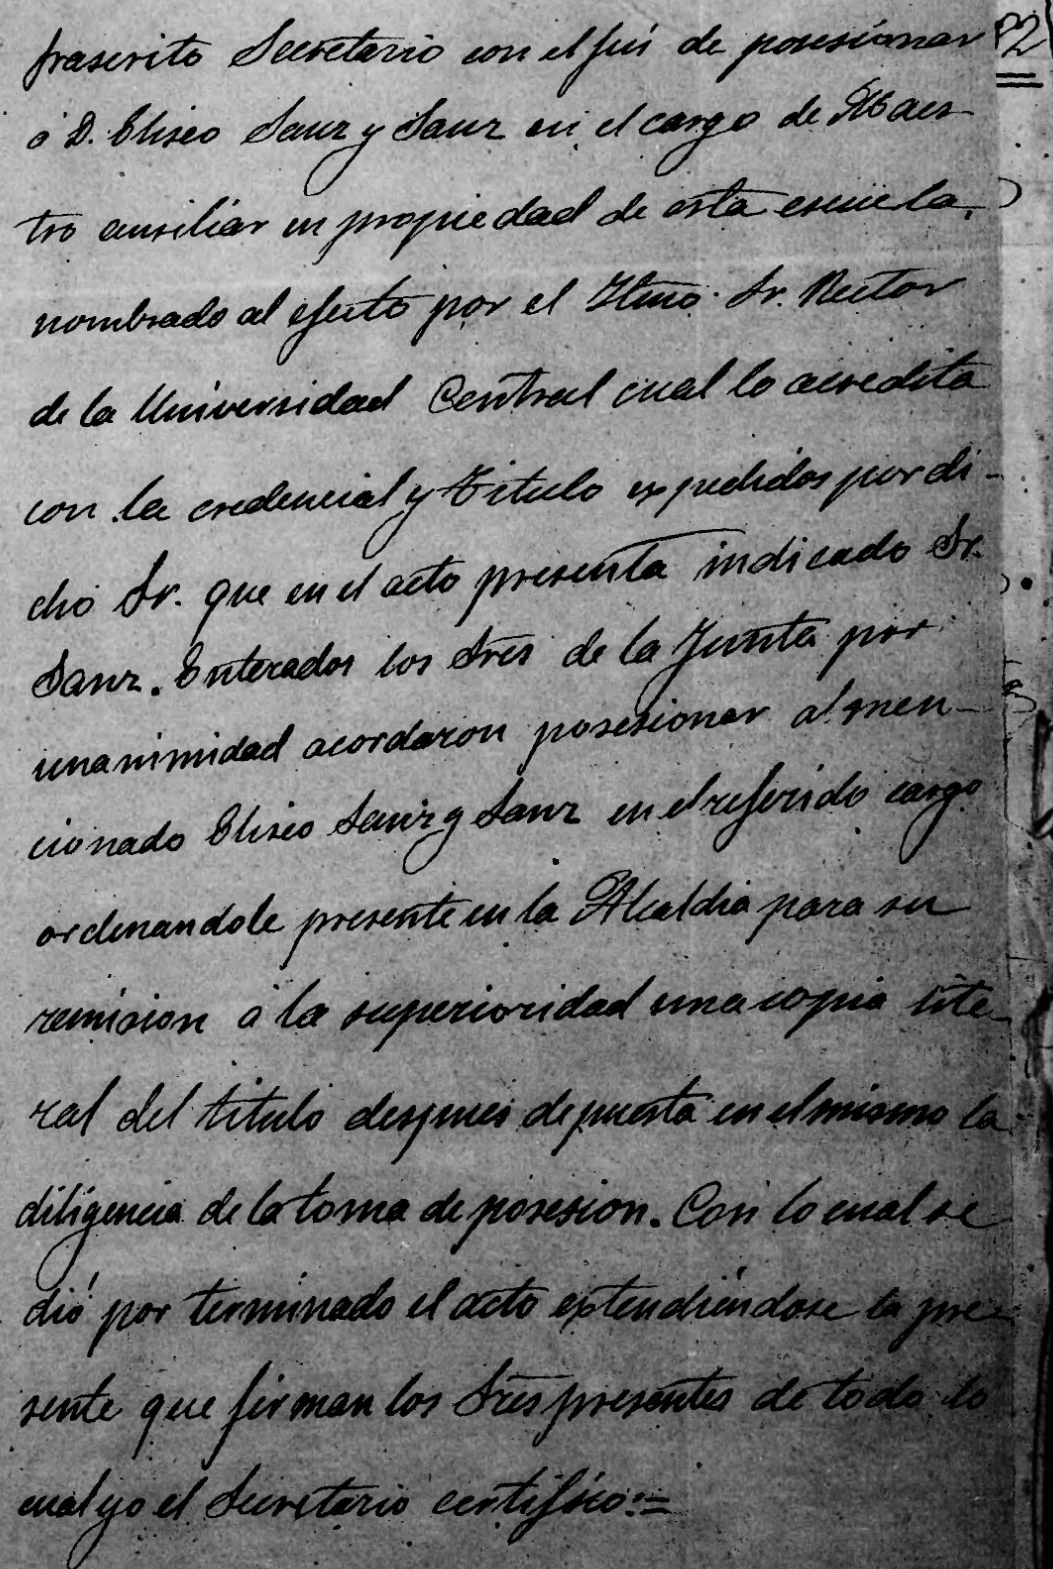 frascrito Secretario con el fin de posesionar
á D. Eliseo Sanz y Sanz en el cargo de Maes-
tro auxiliar en propiedad de esta escuela,
nombrado al efecto por el Iltmo. Sr. Rector
de la Universidad Central cual lo acredita
con la credencial y titulo expedidos por di-
cho Sr. que en el acto presenta indicado Sr.
Sanz. Enterados los Sres de la Junta por
unanimidad acordaron posesionar al men-
cionado Eliseo Sanz y Sanz en el referido cargo
ordenandole presente en la Alcaldia para su
remision á la superioridad una copia lite-
ral del titulo despues de puesta en el mismo la
diligencia de la toma de posesion. Con lo cual se
dió por terminado el acto extendiéndose la pre-
sente que firman los Sres presentes de todo lo
cual yo el Secretario certifico:=